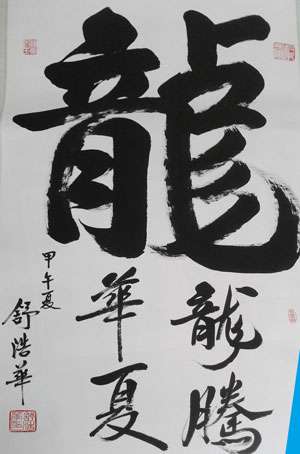 龍
龍騰
華夏
甲午夏
舒浩華